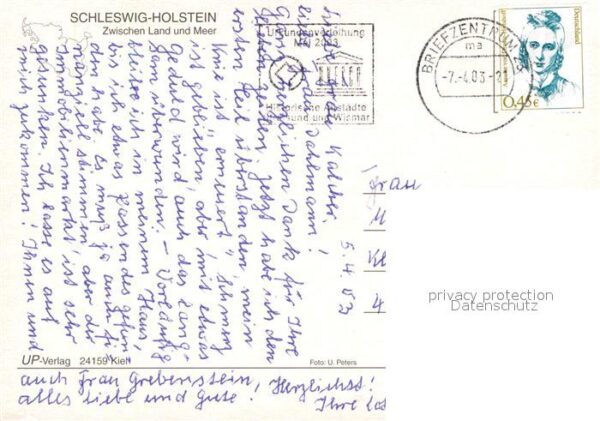 SCHLESWIG-HOLSTEIN
Zwischen Land und Meer
Urkundenverleihung
Mai 2003
UNESCO
Historische Altstädte
Stralsund und Wismar
BRIEFZENTRUM 23
ma
-7.-4.03-21
Deutschland
0,45€
5.4.03
liebe Frau
liebe Frau Dahlmann!
Ganz herzlichen Dank für Ihre
lieben Zeilen. Jetzt habe ich den
ersten Teil überstanden, mein
Knie ist "erneuert". Schmerz
ist geblieben, aber mit etwas
Geduld wird auch das lang-
sam überwunden. - Vorläufig
bleibe ich in meinem Haus,
bis ich etwas Passendes gefun-
den habe. Es muß ja auch fi-
nanziell stimmen, aber der
Immobilienmarkt ist sehr
gesunken. Ich lasse es auf
mich zukommen! Ihnen und
auch Frau Grebenstein, Herzlichst!
alles Liebe und Gute! Ihre
Frau
M
Kl
4
privacy protection
Datenschutz
UP-Verlag 24159 Kiel
Foto: U. Peters